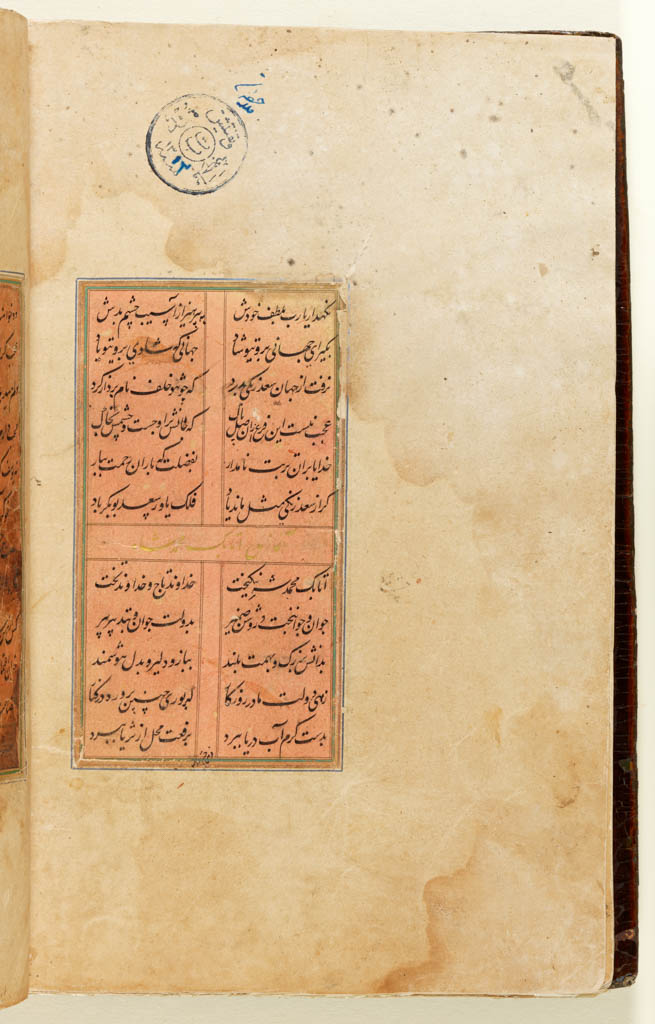 نگهدار یارب بلطف خودش بپرهیز از آسیب چشم بدش
جهانی بروی تو شاد جهانی که شادی بروی تو باد
نرفت از جهان سعد زنگی بدرد که چون تو خلف نام بردار کرد
عجب نیست این فرع ازان اصل پاک که جانش بر اوجست و جسمش بخاک
خدایا بران تربت نامدار بفضلت که باران رحمت ببار
گر از سعد زنگی مثل ماند یاد فلک یاور سعد بوبکر باد
اتابک محمد شه نیکبخت خداوند تاج و خداوند تخت
جوان جوانبخت روشن ضمیر بدولت جوان و بتدبیر پیر
بدانش بزرگ و بهمت بلند ببازو دلیر و بدل هوشمند
زهی دولت مادر روزگار که پوری چنین پرورد در کنار
بدست کرم آب دریا ببرد برفعت محل از ثریا ببرد